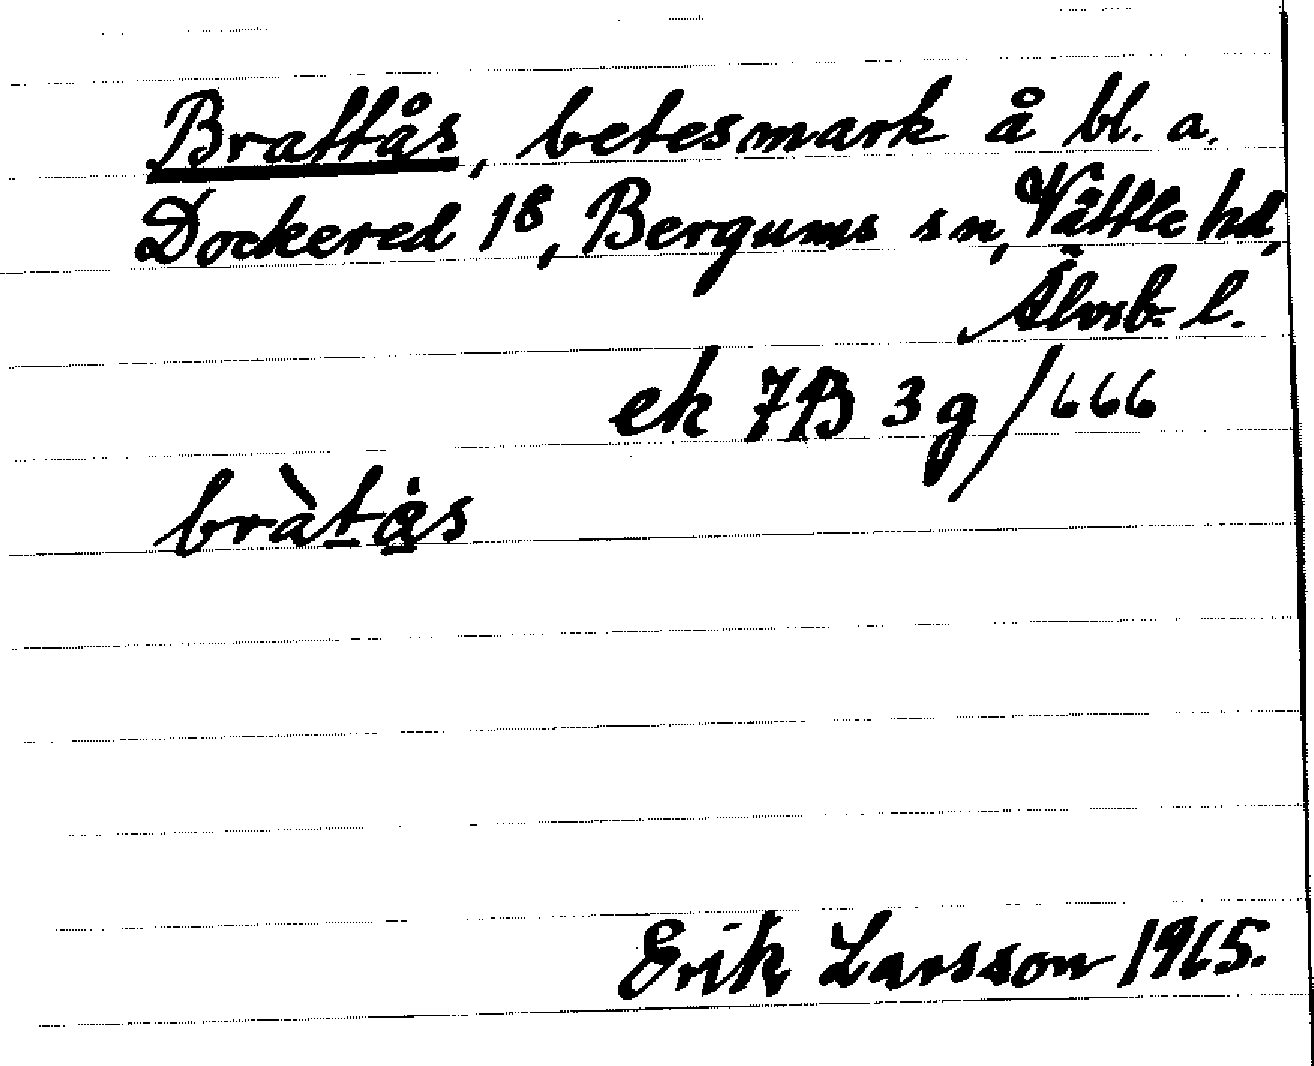 Brattås, betesmark å bl. a.
Dockered 1⁸, Bergums sn, Vättle hd,
Älvsb. l.
ek 7B 3g/666
bràt̲å̲s
Erik Larsson 1965.